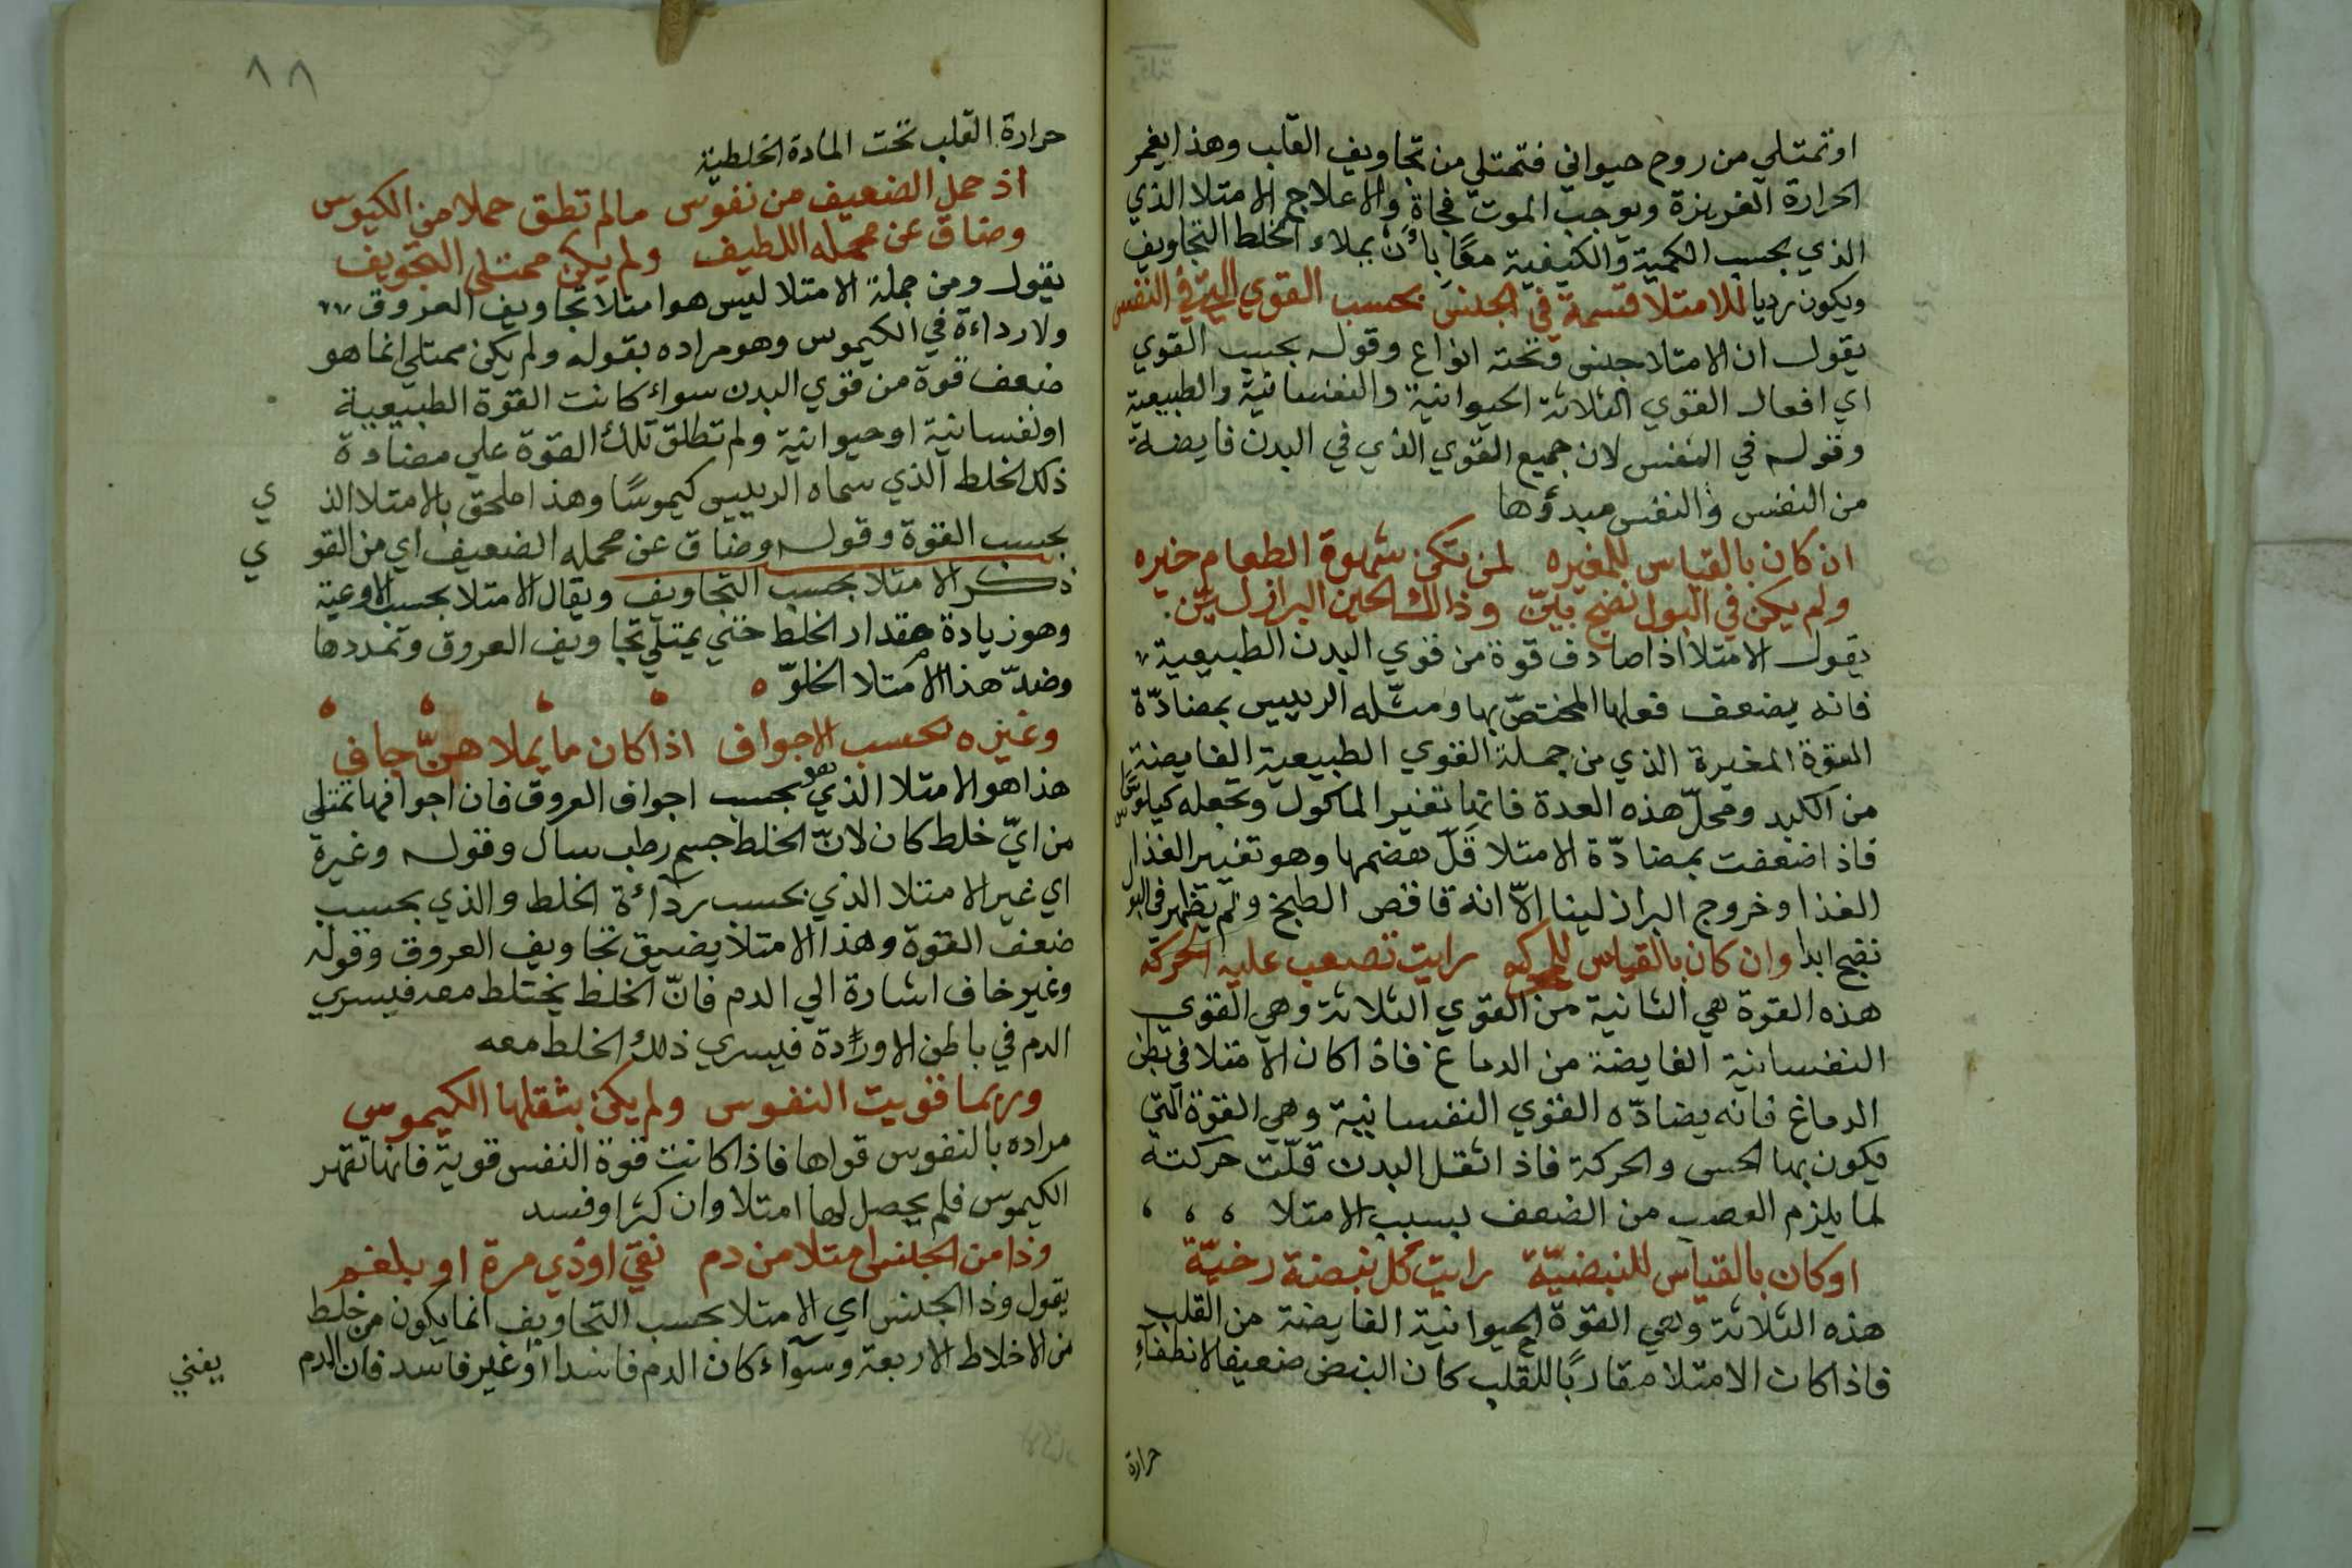 اوتمتلي من روح حيواني فتمتلي من تجاويف القلب وهذا يغمر
الحرارة الغريزة ويوجب الموت فجاة والاعلاج الامتلا الذي
الذي بحسب الكمية والكيفية معًا بان يملاء الخلط التجاويف
ويكون رديا للامتلا قسمة في الجنس بحسب القوي التي في النفس
يقول ان الامتلا جنس وتحته انواع وقوله بحسب القوي
اي افعال القوي الثلاثة الحيوانية والنفسانية والطبيعية
وقوله في النفس لان جميع القوي الذي في البدن فايضة
من النفس والنفس مبدؤها
ان كان بالقياس للمغيره لمن تكن شهوة الطعام خيره
ولم يكن في البول نضج بيّن وذالك الحين البراز ليّن
يقول الامتلا اذا صادف قوة من قوي البدن الطبيعية
فانه يضعف فعلها المختصّ بها ومثّله الرييس بمضادّة
القوة المغيرة الذي من جملة القوي الطبيعية الفايضة
من الكبد ومحلّ هذه العدة فانها تغير الماكول وتجعله كيلوسًا
فاذا ضعفت بمضادّة الامتلا قَلّ هضمها وهو تغيير الغذا
الغذا وخروج البراز لينا الاّ انه ناقص الطبخ ولم يظهر في البول
نضج ابدا وان كان بالقياس للمحركه رايت تصعب عليه الحركة
هذه القوة هي الثانية من القوي الثلاثة وهي القوي
النفسانية الفايضة من الدماغ فاذا كان الامتلا في بطن
الدماغ فانه يضادّه القوي النفسانية وهي القوة التي
يكون بها الحس والحركة فاذا ثقل البدن قلّت حركته
لما يلزم العصب من الضعف بسبب الامتلا
اوكان بالقياس للنبضيّة رايت كل نبضة رخيّة
هذه الثلاثة وهي القوة الحيوانية الفايضة من القلب
فاذا كان الامتلا مقاربًا للقلب كان النبض ضعيفا لانطفاء
حرارة
٨٨
حرارة القلب تحت المادة الخلطية
اذ حمل الضعيف من نفوس مالم تطق حملا من الكيوس
وضاق عن محمله اللطيف ولم يكن ممتلي التجويف
يقول ومن جملة الامتلا ليس هو امتلا تجاويف العروق
ولا رداءة في الكيموس وهو مراده بقوله ولم يكن ممتلي انما هو
ضعف قوة من قوي البدن سواء كانت القوة الطبيعية
اونفسانية اوحيوانية ولم تطلق تلك القوة علي مضادة
ذلك الخلط الذي سماه الرييس كيموسًا وهذا ملحق بالامتلا الذي
بحسب القوة وقوله وضاق عن محمله الضعيف اي من القوي
ذكر الامتلا بحسب التجاويف ويقال الامتلا بحسب الاوعية
وهو زيادة مقدار الخلط حتي يمتلي تجاويف العروق وتمددها
وضدّ هذا الامتلا الخلوّ
وغيره بحسب الاجواف اذا كان ما يملا هنّ جافي
هذا هو الامتلا الذي هو بحسب اجواف العروق فان اجوافها تمتلي
من ايّ خلط كان لانّ الخلط جسم رطب سال وقوله وغيرة
اي غير الامتلا الذي بحسب رداءة الخلط والذي بحسب
ضعف القوة وهذا الامتلا يضيق تجاويف العروق وقوله
وغير خاف اشارة الي الدم فانّ الخلط يختلط معه فيسري
الدم في باطن الاورادة فيسري ذلك الخلط معه
وربما قويت النفوس ولم يكن يثقلها الكيموس
مراده بالنفوس قواها فاذا كانت قوة النفس قوية فانها تقهر
الكيموس فلم يحصل لها امتلا وان كثرا وفسد
وذا من الجنس امتلا من دم نقي اوذي مرة او بلغم
يقول وذا الجنس اي الامتلا بحسب التجاويف انما يكون من خلط
من الاخلاط الاربعة وسوآء كان الدم فاسدا او غير فاسد فان الدم
يغني